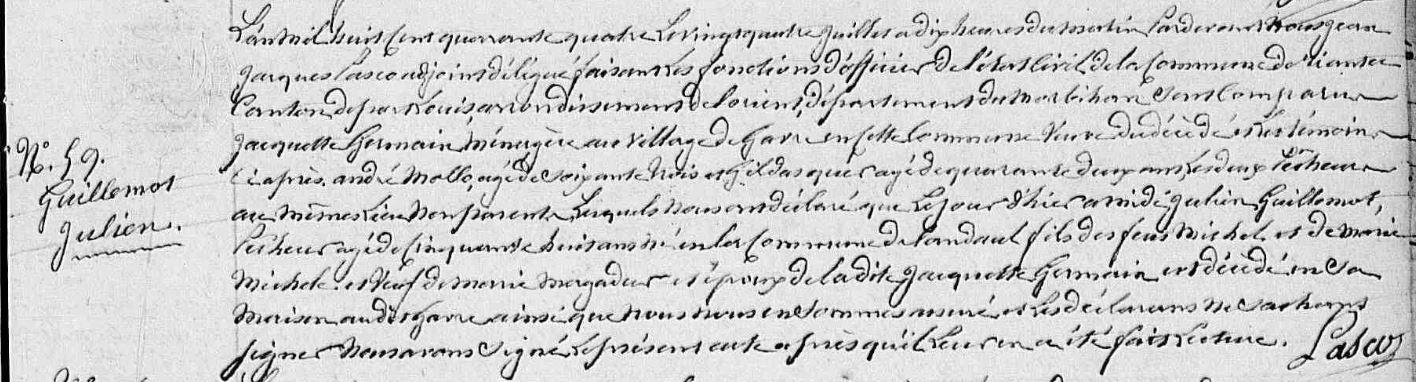 L'an mil huit cent quarante quatre le vingt quatre juillet a dix heures du matin Pardevant Nous jean
jacques Lasco adjoint délégué faisant les fonctions d'officier de l'état Civil de la Commune de Riantec
Canton de port Louis, arrondissement de Lorient, département du Morbihan Sont Comparus
jacquette Germain Ménagère au village de Gavre en cette Commune Veuve du décédé et les témoins
N°. 59. ci après, andré Mollo, agé de soixante trois et Gildas quer agé de quarante deux ans les deux Pêcheurs
Guillemot au même lieu Non parents Lesquels Nous ont déclaré que le jour d'hier a midi julien Guillemot,
julien. Pecheur agé de Cinquante huit ans né en la Commune de Landaul fils des feus Michel et de Marie
Michele et Veuf de Marie Magadur et époux de la dite jacquette Germain est décédé en Sa
Maison audit Gavre ainsi que Nous nous en Sommes assuré et les déclarans ne Sachant
signer Nous avons Signé le présent acte après qu'il leur en a été fait Lecture. Lasco